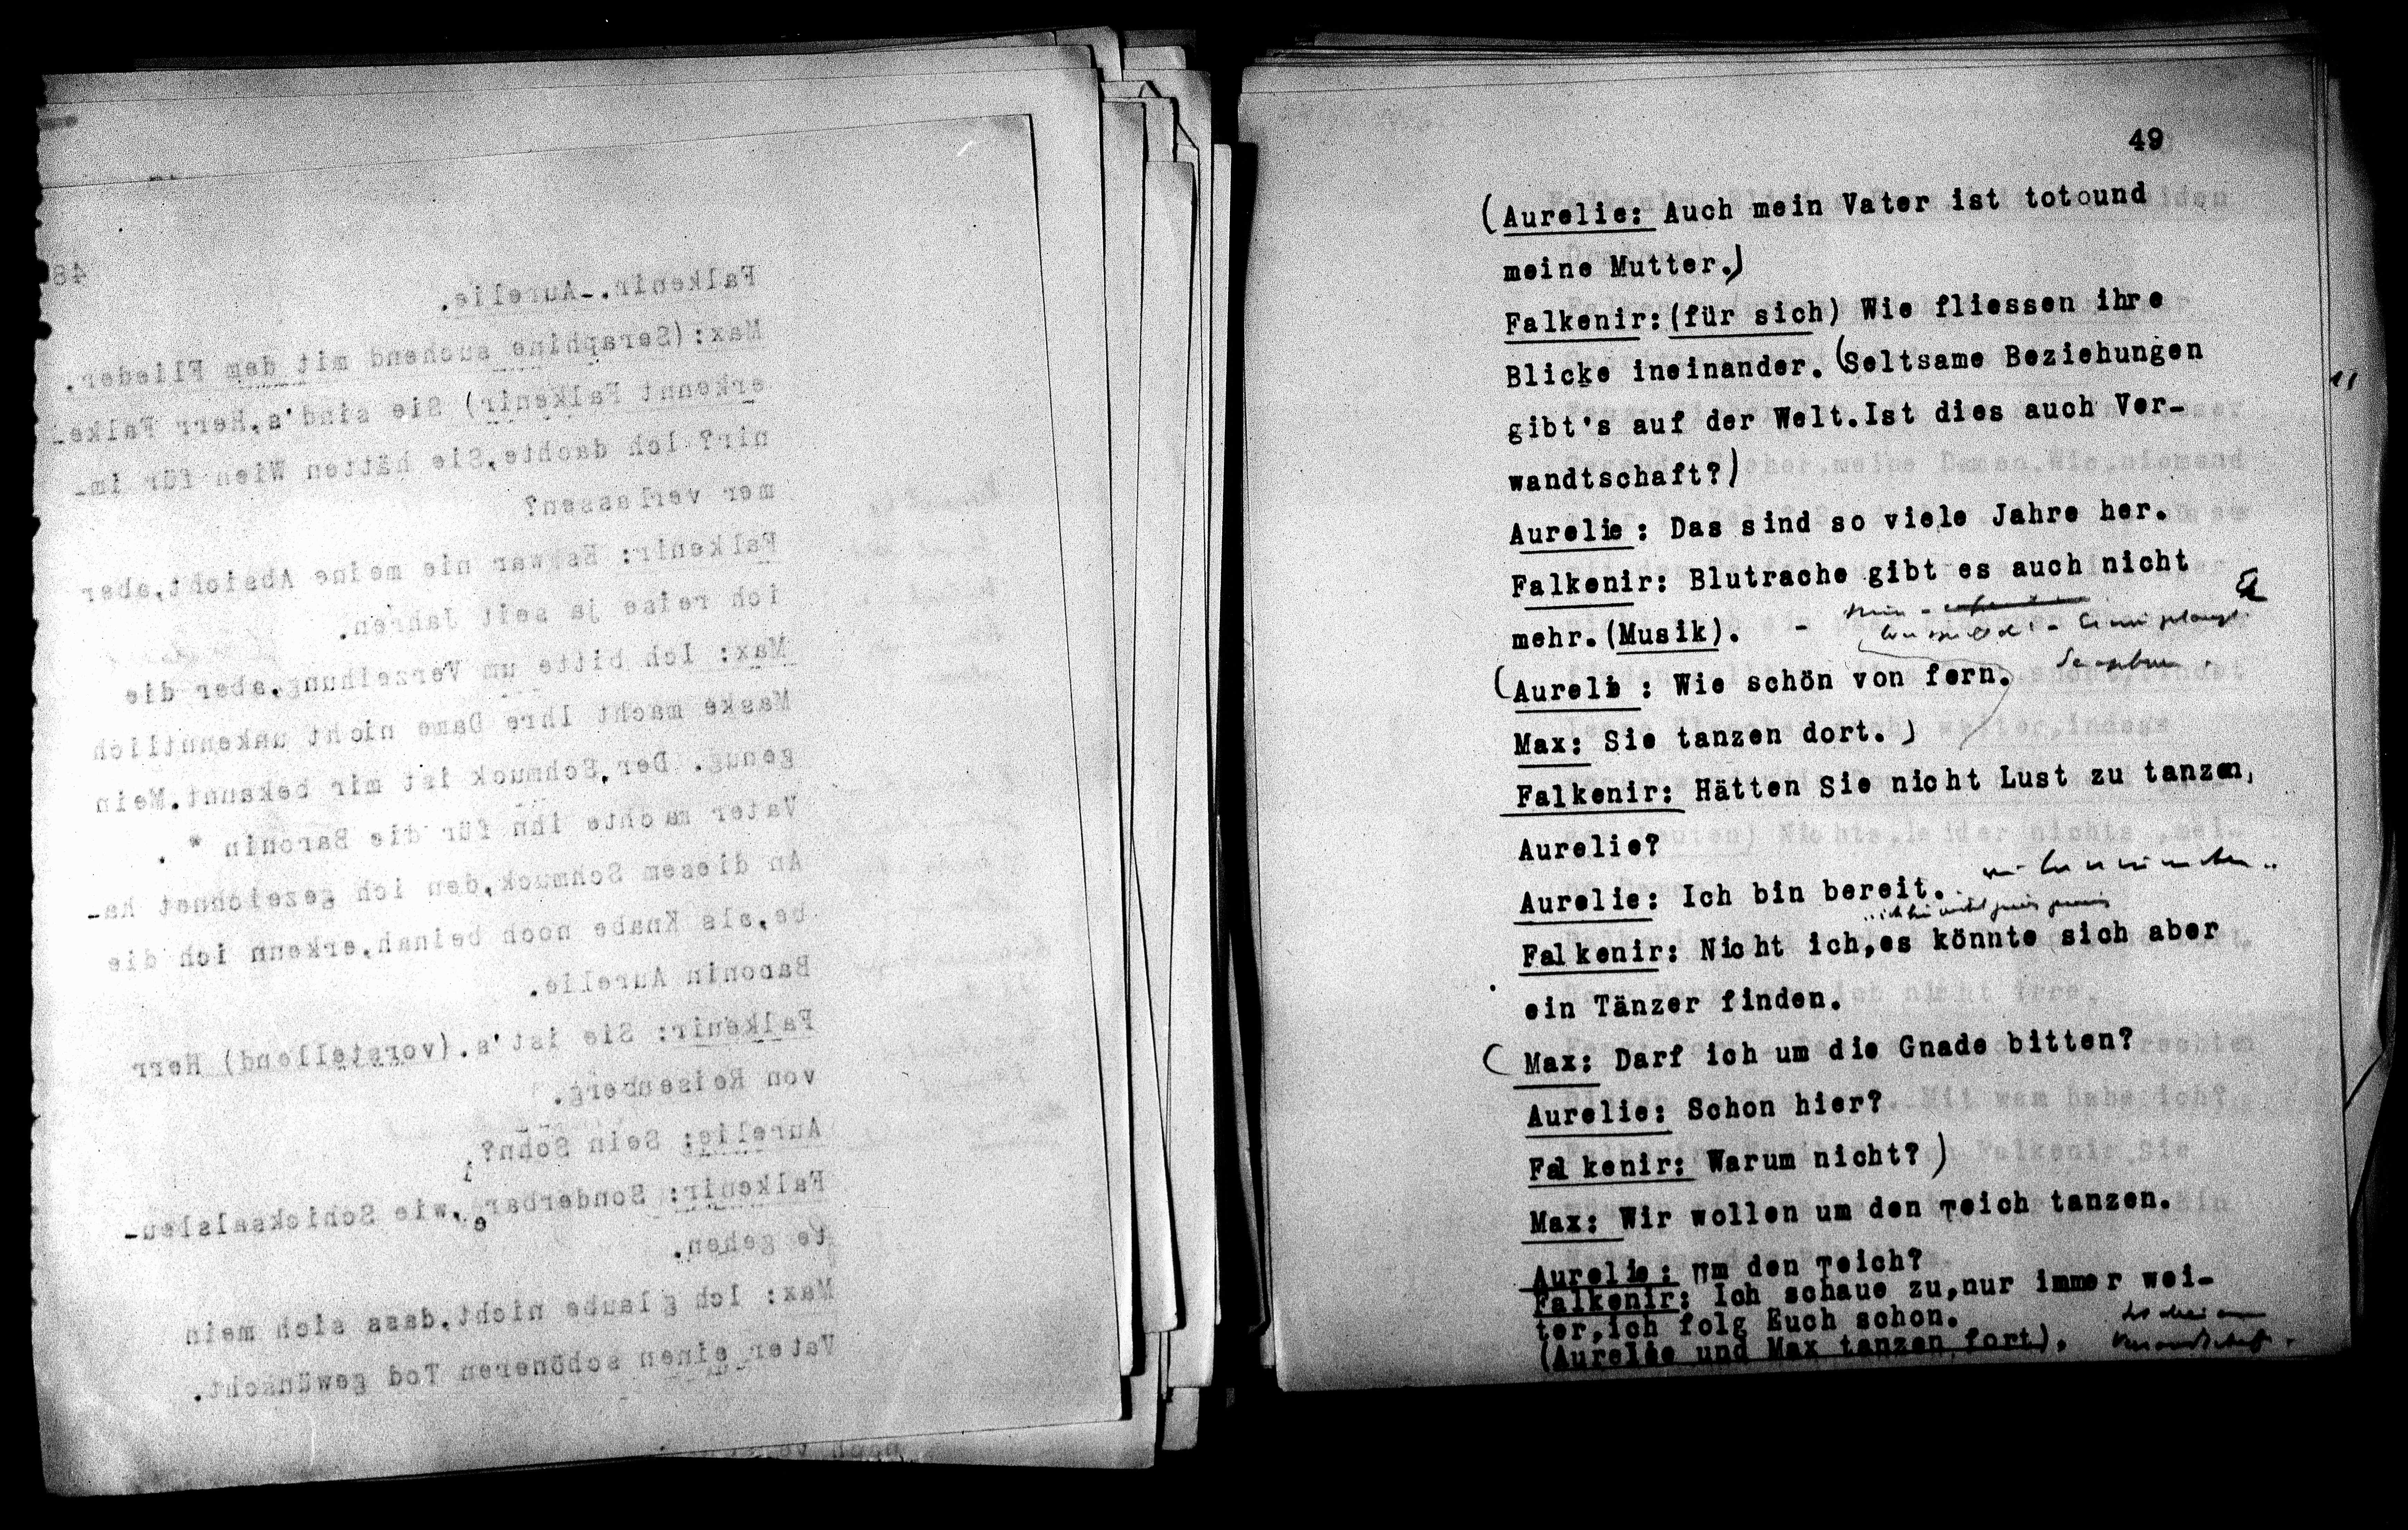 48
Falkenir.-Aurelie.
Max:(Seraphine suchend mit dem Flieder.
erkennt Falkenir) Sie sind's,Herr Falke-
nir? Ich dachte,Sie hätten Wien für im-
mer verlassen?
Falkenir: Es war nie meine Absicht,aber
ich reise ja seit Jahren.
Max: Ich bitte um Verzeihung,aber die
Maske macht Ihre Dame nicht unkenntlich
genug. Der Schmuck ist mir bekannt.Mein
Vater machte ihn für die Baronin * .
An diesem Schmuck,den ich gezeichnet ha-
be,als Knabe noch beinah,erkenn ich die
Baronin Aurelie.
Falkenir: Sie ist's.(vorstellend) Herr
von Reisenberg.
Aurelie: Sein Sohn?
Falkenir: Sonderbar,wie Schicksalsleu-
te gehen.
Max: Ich glaube nicht,dass sich mein
Vater einen schöneren Tod gewünscht.
49
(Aurelie: Auch mein Vater ist totound
meine Mutter.)
Falkenir:(für sich) Wie fliessen ihre
Blicke ineinander.(Seltsame Beziehungen
gibt's auf der Welt.Ist dies auch Ver-
wandtschaft?)
Aurelie: Das sind so viele Jahre her.
Falkenir: Blutrache gibt es auch nicht
mehr.(Musik). -
(Aurelie : Wie schön von fern.
Max: Sie tanzen dort.)
Falkenir: Hätten Sie nicht Lust zu tanzen,
Aurelie?
Aurelie: Ich bin bereit.
Falkenir: Nicht ich,es könnte sich aber
ein Tänzer finden.
(Max: Darf ich um die Gnade bitten?
Aurelie: Schon hier?
Falkenir: Warum nicht?)
Max: Wir wollen um den Teich tanzen.
Aurelie: Um den Teich?
Falkenir: Ich schaue zu,nur immer wei-
ter,ich folg Euch schon.
(Aurelie und Max tanzen fort).